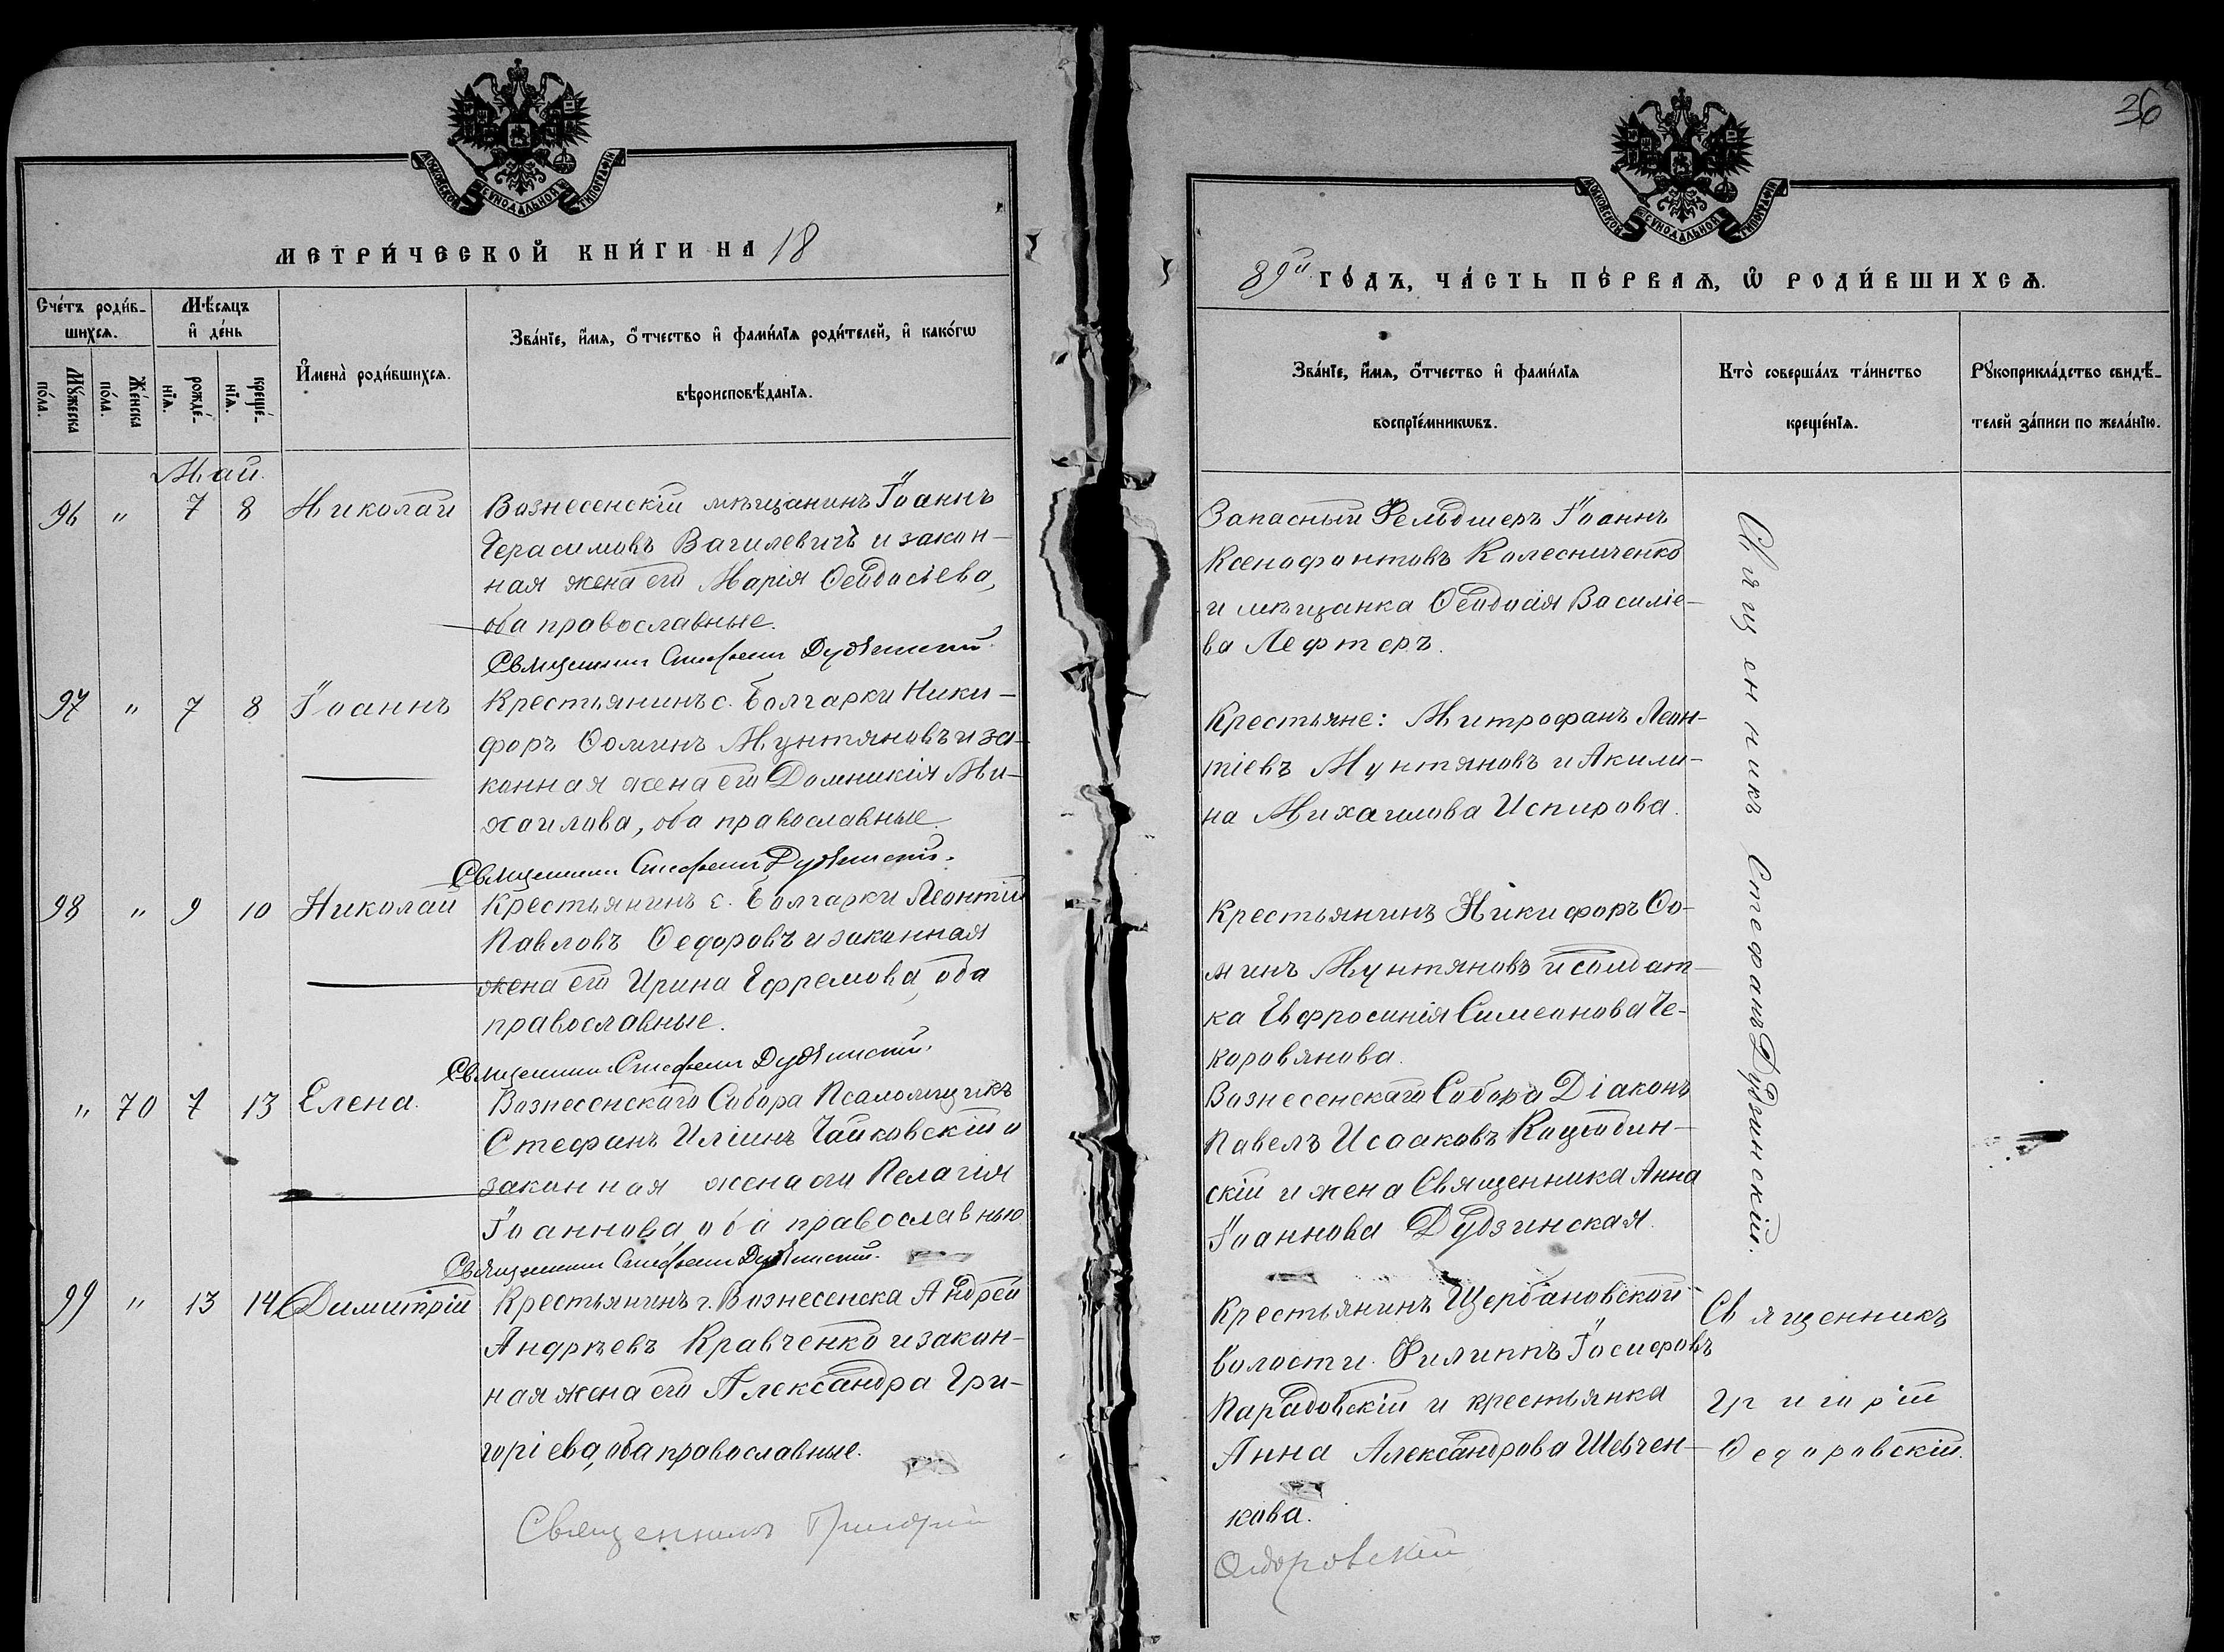 МОСКОВСКОЙ СѴНОДАЛЬНОЙ ТИПОГРАФІИ
МЕТРИ́ЧЕСКОЙ КНИ́ГИ НА 18
Сче́тъ роди́в-
шихсѧ.
Мѣ́сѧцъ
и҆ де́нь
И҆мена̀ роди́вшихсѧ.
Зва́нїе, и҆́мѧ, ѻ҆́тчество и҆ фами́лїѧ роди́телей, и҆ како́гѡ
вѣроисповѣ́данїѧ.
Мꙋ́жеска
по́ла.
Же́нска
по́ла.
рожде́-
нїѧ.
креще́-
нїѧ.
Май.
96 " 7 8 Николай Вознесенскій мѣщанинъ Іоаннъ
Герасимовъ Вагилевичъ и закон-
ная жена его Марія Ѳеодосіева,
оба православные.
Священникъ Стефанъ Дудзинскій.
97 " 7 8 Іоаннъ Крестьянинъ с. Болгарки Ники-
форъ Ѳоминъ Мунтяновъ и за-
конная жена его Домникія Ми-
хаилова, оба православные.
Священникъ Стефанъ Дудзинскій.
98 " 9 10 Николай Крестьянинъ с. Болгарки Леонтій
Павловъ Ѳедоровъ и законная
жена его Ирина Ефремова, оба
православные.
Священникъ Стефанъ Дудзинскій.
" 70 7 13 Елена. Вознесенскаго Собора Псаломщикъ
Стефанъ Иліинъ Чайковскій и
законная жена его Пелагія
Іоаннова, оба православные
Священникъ Стефанъ Дудзинскій.
99 " 13 14 Димитрій Крестьянинъ г. Вознесенска Андрей
Андреевъ Кравченко и закон-
ная жена его Александра Гри-
горіева, оба православные.
Священникъ Григорій
36
МОСКОВСКОЙ СѴНОДАЛЬНОЙ ТИПОГРАФІИ
89й ГО́ДЪ, ЧА́СТЬ ПЕ́РВАѦ, Ѡ҆ РОДИ́ВШИХСѦ.
Зва́нїе, и҆́мѧ, ѻ҆́тчество и҆ фами́лїѧ
воспрїе́мникѡвъ.
Кто̀ соверша́лъ та́инство
креще́нїѧ.
Рꙋкоприкла́дство свидѣ́-
телей за́писи по жела́нїю.
Запасный Фельдшеръ Іоаннъ
Ксенофонтовъ Колесниченко
и мѣщанка Ѳеодосія Василіе-
ва Лефтеръ.
Крестьяне: Митрофанъ Леон-
тіевъ Мунтяновъ и Акили-
на Михаилова Испирова.
Крестьянинъ Никифоръ Ѳо-
минъ Мунтяновъ и солдат-
ка Евфросинія Симеонова Че-
коровянова.
Вознесенскаго Собора Діаконъ
Павелъ Исааковъ
скій и жена Священника Анна
Іоаннова Дудзинская.
Священникъ Стефанъ Дудзинскій.
Крестьянинъ Щербановской
волости Филиппъ Іосифовъ
Парадовскій и крестьянка
Анна Александрова Шевчен-
кова.
Священникъ
Григорій
Ѳедоровскій.
Ѳедоровскій